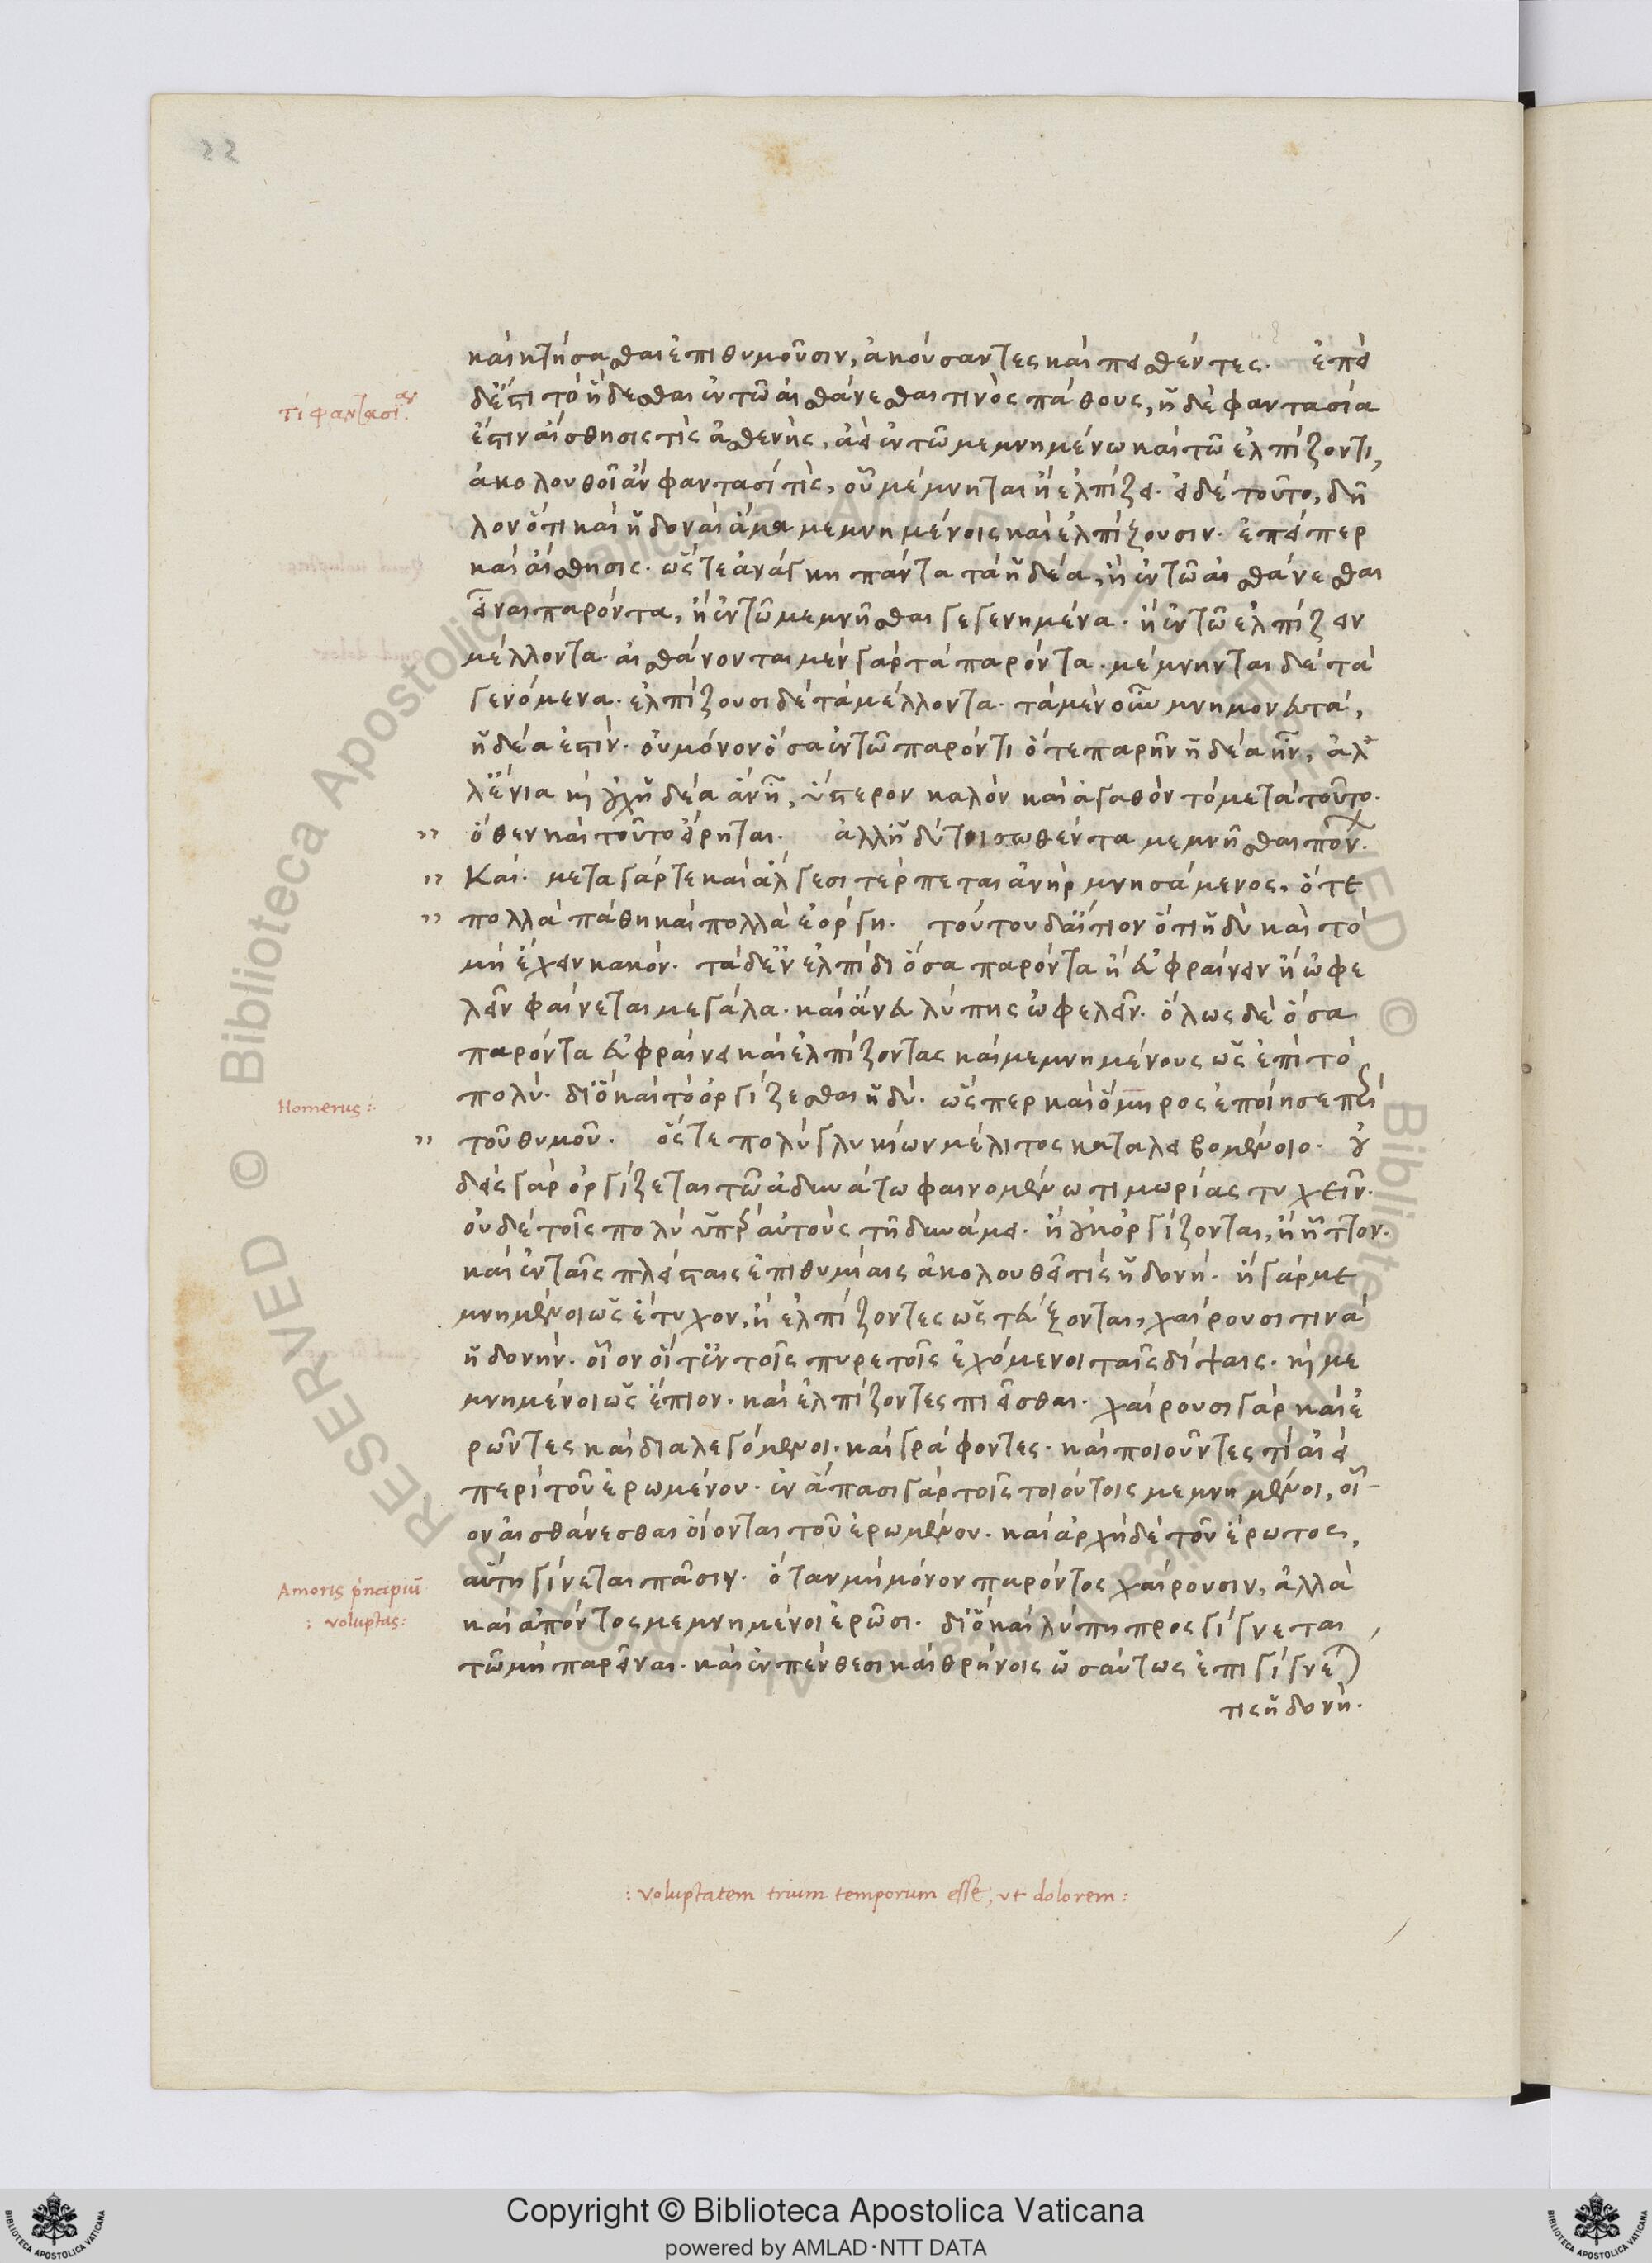 καὶ κτήσασθαι ἐπιθυμοῦσιν, ἀκούσαντες καὶ πεισθέντες. ἐπεὶ
τί φαντασία
δ' ἐστὶ τὸ ἥδεσθαι ἐν τῶ αἰσθάνεσθαι τινὸς πάθους, ἡ δὲ φαντασία
ἐστὶν αἴσθησις τὶς ἀσθενής, ἀεὶ ἐν τῶ μεμνημένω καὶ τῶ ἐλπίζοντι,
ἀκολουθοῖ ἂν φαντασί τὶς, οὗ μέμνηται ἢ ἐλπίζει. εἰ δὲ τοῦτο, δῆ
λον ὅτι καὶ ἡδοναὶ ἅμα μεμνημένοις καὶ ἐλπίζουσιν. ἐπείπερ
καὶ αἴσθησις. ὥστε ἀνάγκη πάντα τὰ ἡδέα, ἢ ἐν τῶ αἰσθάνεσθαι
εἶναι παρόντα, ἢ ἐν τῶ μεμνῆσθαι γεγενημένα. ἢ ἐν τῶ ἐλπίζειν
μέλλοντα. αἰσθάνονται μὲν γὰρ τὰ παρόντα. μέμνηνται δὲ τὰ
γενόμενα. ἐλπίζουσι δὲ τὰ μέλλοντα. τὰ μὲν οὖν μνημονευτά,
ἡδέα ἐστίν. οὐ μόνον ὅσα ἐν τῶ παρόντι ὅτε παρῆν ἡδέα ἦν, ἀλ
λ' ἔνια κὶ οὐχ ἡδέα ἂν ἦ, ὕστερον καλὸν καὶ ἀγαθὸν τὸ μετὰ τοῦτο.
" ὅθεν καὶ τοῦτο εἴρηται. ἀλλ' ἡδύ τοι σωθέντα μεμνῆσθαι πόνων.
" Καὶ. μετα γάρ τε καὶ ἄλγεσι τέρπεται ἀνὴρ μνησάμενος, ὅτε
" πολλὰ πάθη καὶ πολλὰ ἐόργη. τούτου δ' αἴτιον ὅτι ἡδὺ καὶ τὸ
μὴ ἔχειν κακόν. τὰ δ' ἐν ἐλπίδι ὅσα παρόντα ἢ εὐφραίνειν ἢ ὠφε
λεῖν φαίνεται μεγάλα. καὶ ἄνευ λύπης ὠφελεῖν. ὅλως δὲ ὅσα
παρόντα εὐφραίνει καὶ ἐλπίζοντας καὶ μεμνημένους ὡς ἐπὶ τὸ
Homerus:
πολύ. διὸ καὶ τὸ ὀργίζεσθαι ἡδύ. ὥσπερ καὶ ὅμηρος ἐποίησε περὶ
" τοῦ θυμοῦ. ὅς τε πολὺ γλυκίων μέλιτος καταλειβομένοιο. οὐ
δεὶς γὰρ ὀργίζεται τῶ ἀδυνάτω φαινομένω τιμωρίας τυχεῖν.
οὐδὲ τοῖς πολὺ ὑπὲρ αὐτοὺς τῆ δυνάμει. ἢ οὐκ ὀργίζονται, ἢ ἧττον.
καὶ ἐν ταῖς πλείσταις ἐπιθυμίαις ἀκολουθεῖ τὶς ἡδονή. ἢ γὰρ με
μνημένοι ὡς ἔτυχον, ἢ ἐλπίζοντες ὡς τεύξονται, χαίρουσι τινὰ
ἡδονήν. οἷον οἵ τ' ἐν τοῖς πυρετοῖς ἐχόμενοι ταῖς δίψαις. κὶ με
μνημένοι ὡς ἔπιον. καὶ ἐλπίζοντες πιεῖσθαι. χαίρουσι γὰρ καὶ ἐ
ρῶντες καὶ διαλεγόμενοι. καὶ γράφοντες. καὶ ποιοῦντες τὶ αἰεὶ
περὶ τοῦ ἐρωμένου. ἐν ἅπασι γὰρ τοῖς τοιούτοις μεμνημένοι, οἷ
ον αἰσθάνεσθαι οἴονται τοῦ ἐρωμένου. καὶ ἀρχὴ δὲ τοῦ ἔρωτος,
Amoris principiū
: voluptas:
αὕτη γίνεται πᾶσιν. ὅταν μὴ μόνον παρόντος χαίρουσιν, ἀλλὰ
καὶ ἀπόντος μεμνημένοι ἐρῶσι. διὸ καὶ λύπη προσγίγνεται
τῶ μὴ παρεῖναι. καὶ ἐν πένθεσι καὶ θρήνοις ὡσαύτως ἐπιγίγνε
τις ἡδονή.
: voluptatem trium temporum esse, ut dolorem:
Copyright © Biblioteca Apostolica Vaticana
powered by AMLAD·NTT DATA